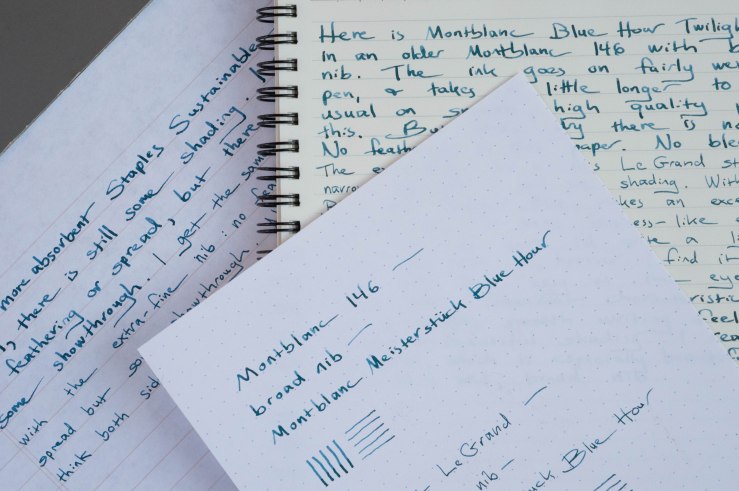 more absorbent Staples Sustainable
, there is still some shading.
feathering or spread, but there
some showthrough. I get the same
with the extra-fine nib: no
spread but showthrough.
think both sid
Here is Montblanc Blue Hour
in an older Montblanc 146 with b
nib. The ink goes on fairly we
pen, & takes little longer to
usual on high quality
this. there is n
No No
The Le Grand
narro shading. With
an
-like
find it
eye
Montblanc 146 —
broad nib —
Montblanc Meisterstück Blue Hour
LeGrand —
nib —
ück Blue Hour